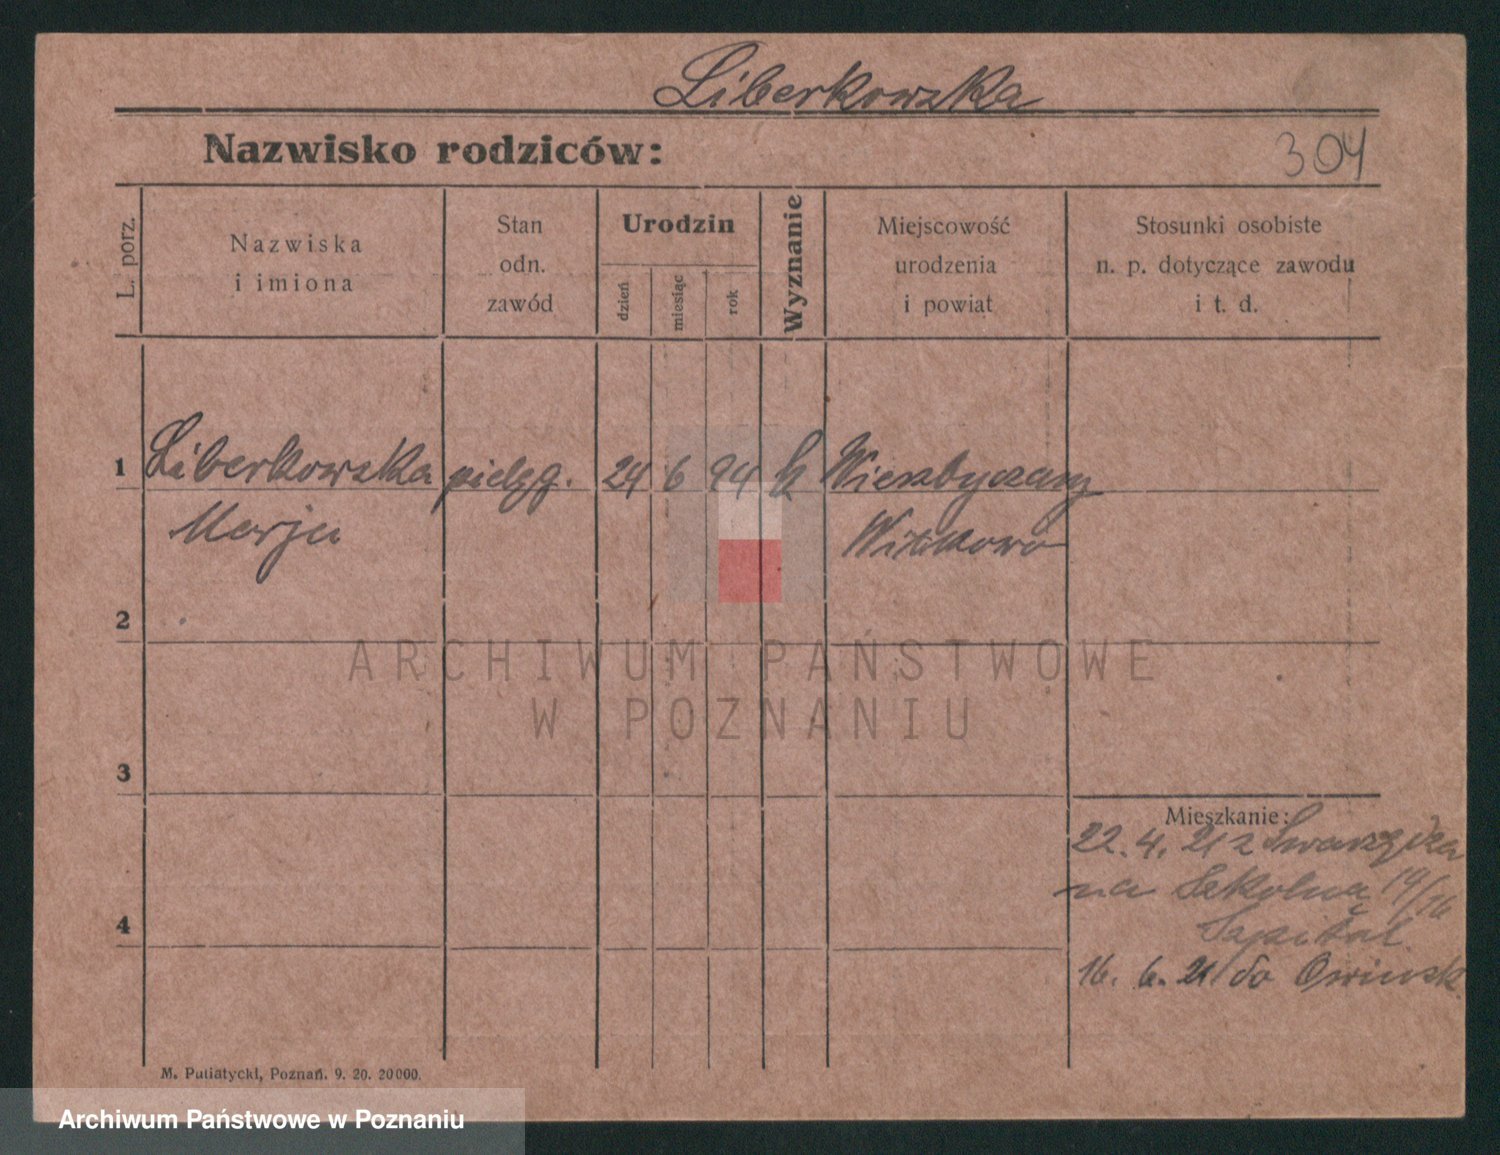 Liberkowska
Nazwisko rodziców:
304
L. porz.
Nazwiska
i imiona
Stan
odn.
zawód
Urodzin
dzień
miesiąc
rok
Wyznanie
Miejscowość
urodzenia
i powiat
Stosunki osobiste
n. p. dotyczące zawodu
i t. d.
1 Liberkowska pielęg. 24 6 94 k Wierzbyczany
Marja Witkowo
2
3
4
Mieszkanie:
22. 4. 21 z Swarzędza
na Szkolną 14/16
Szpital
16. 6. 21 do Owinsk.
M. Putiatycki, Poznań. 9. 20. 20000.
ARCHIWUM PAŃSTWOWE
W POZNANIU
Archiwum Państwowe w Poznaniu